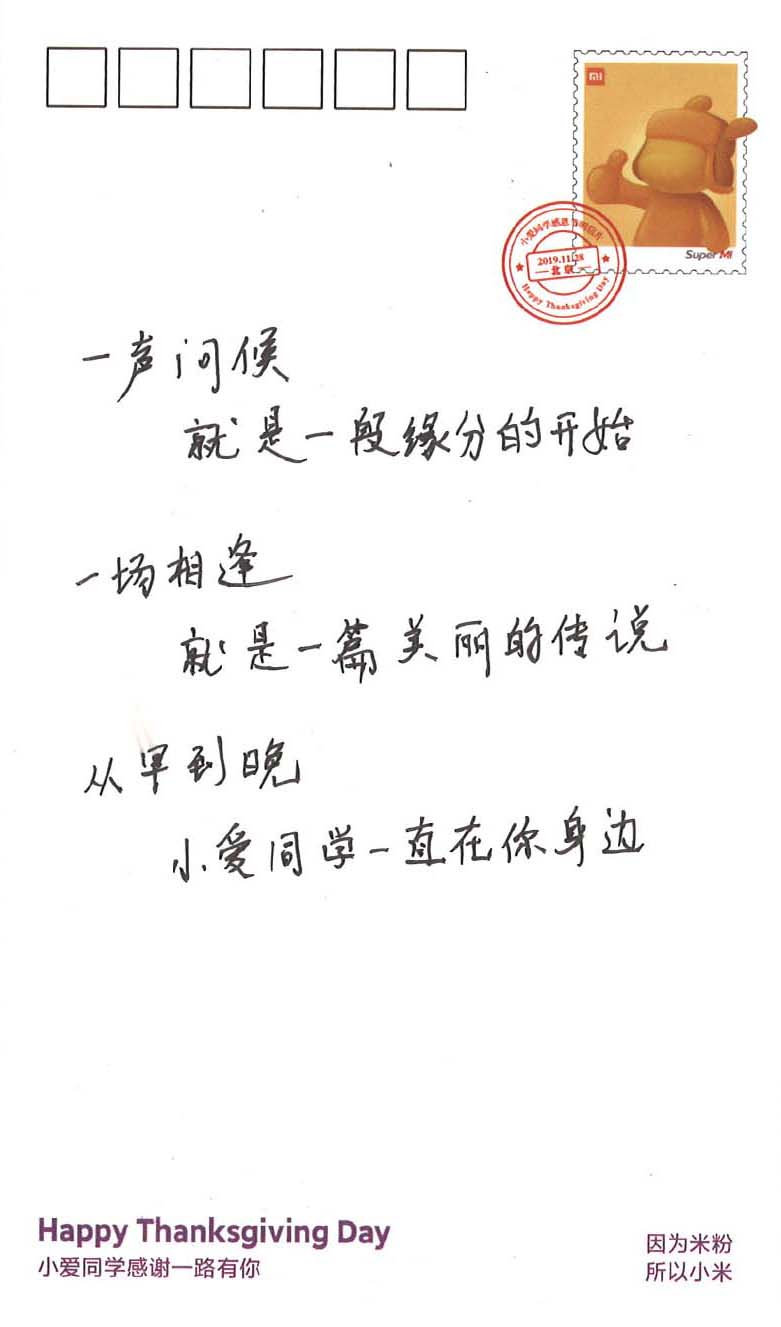 MI
Super MI
小爱同学感恩节明信片
2019.11.28
北京
Happy Thanksgiving Day
一声问候
就是一段缘分的开始
一场相逢
就是一篇美丽的传说
从早到晚
小爱同学一直在你身边
Happy Thanksgiving Day
小爱同学感谢一路有你
因为米粉
所以小米